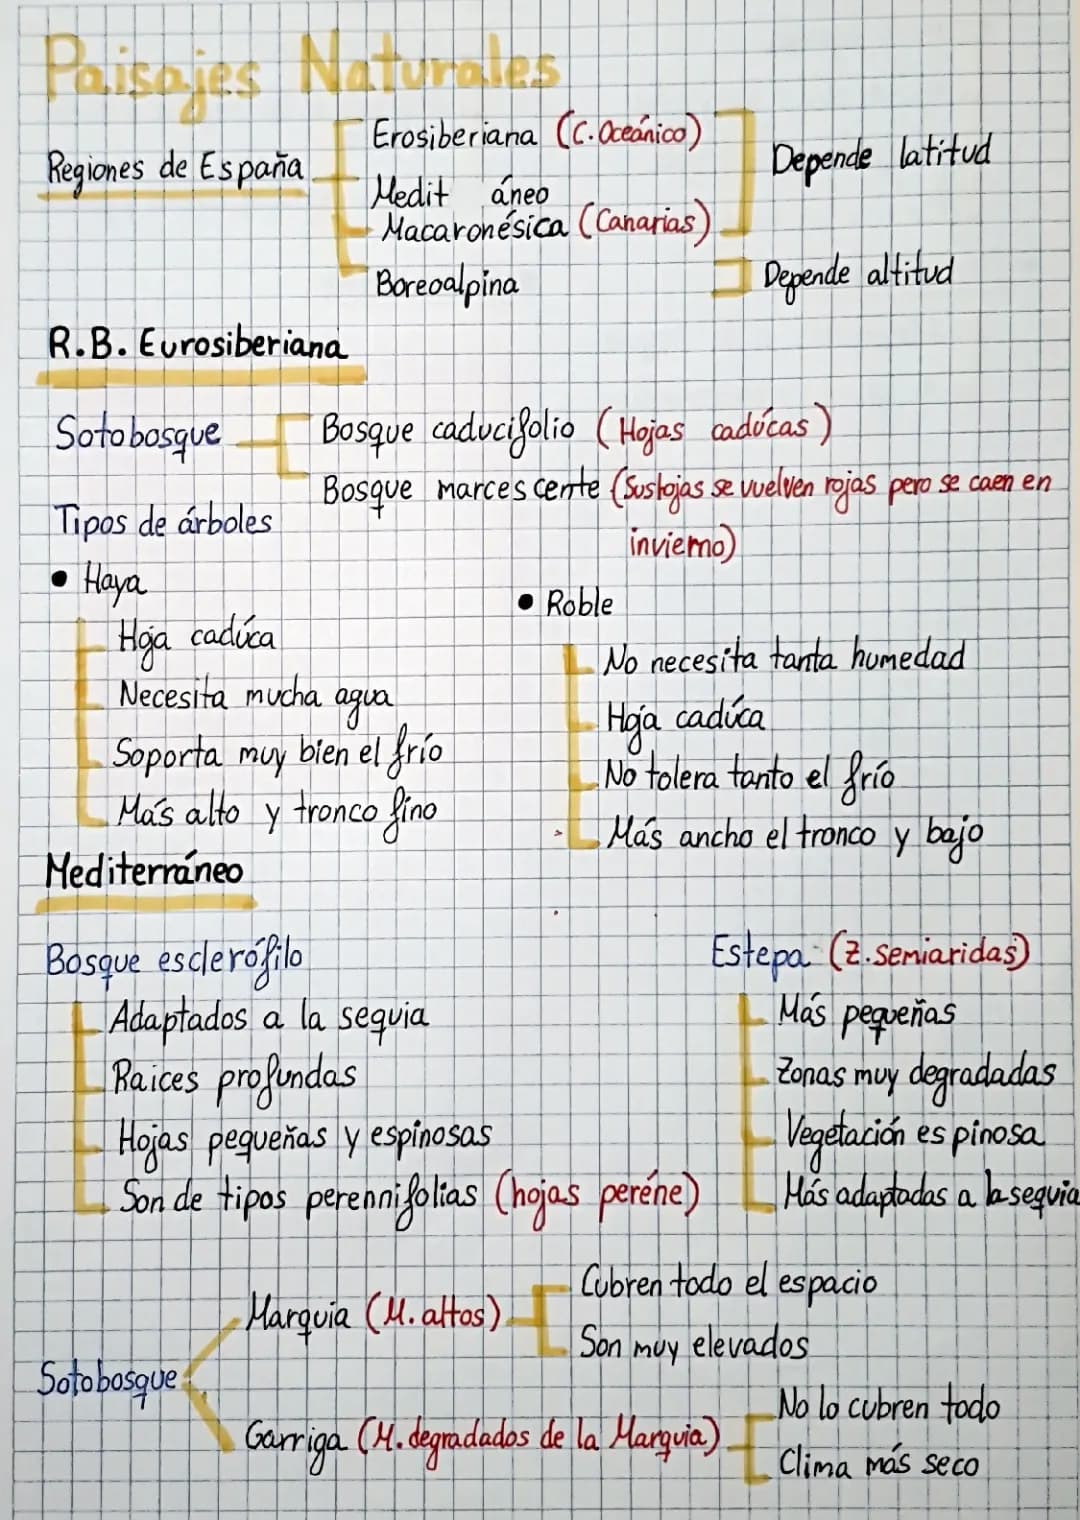 Paisajes Naturales
Regiones de España
Erosiberiana (C.Oceánico)
Medit áneo
Macaronésica (Canarias)
Depende latitud
Boreoalpina
Depende altitud
R.B. Eurosiberiana
Sotobosque
Bosque caducifolio (Hojas cadúcas)
Bosque marcescente (Sushojas se vuelven rojas pero se caen en
invierno)
Tipos de árboles
• Haya
Hoja cadúca
Necesita mucha agua
Soporta muy bien el frío
Más alto y tronco fino
• Roble
No necesita tanta humedad
Hoja cadúca
No tolera tanto el frío
Más ancho el tronco y bajo
Mediterráneo
Bosque esclerófilo
Adaptados a la sequia
Raices profundas
Hojas pequeñas y espinosas
Son de tipos perennifolias (hojas peréne)
Estepa (Z.semiaridas)
Más pequeñas
Zonas muy degradadas
Vegetación espinosa
Más adaptadas a la sequia
Sotobosque
Marquia (M. altos)
Cubren todo el espacio
Son muy elevados
Garriga (M. degradados de la Marquia)
No lo cubren todo
Clima más seco